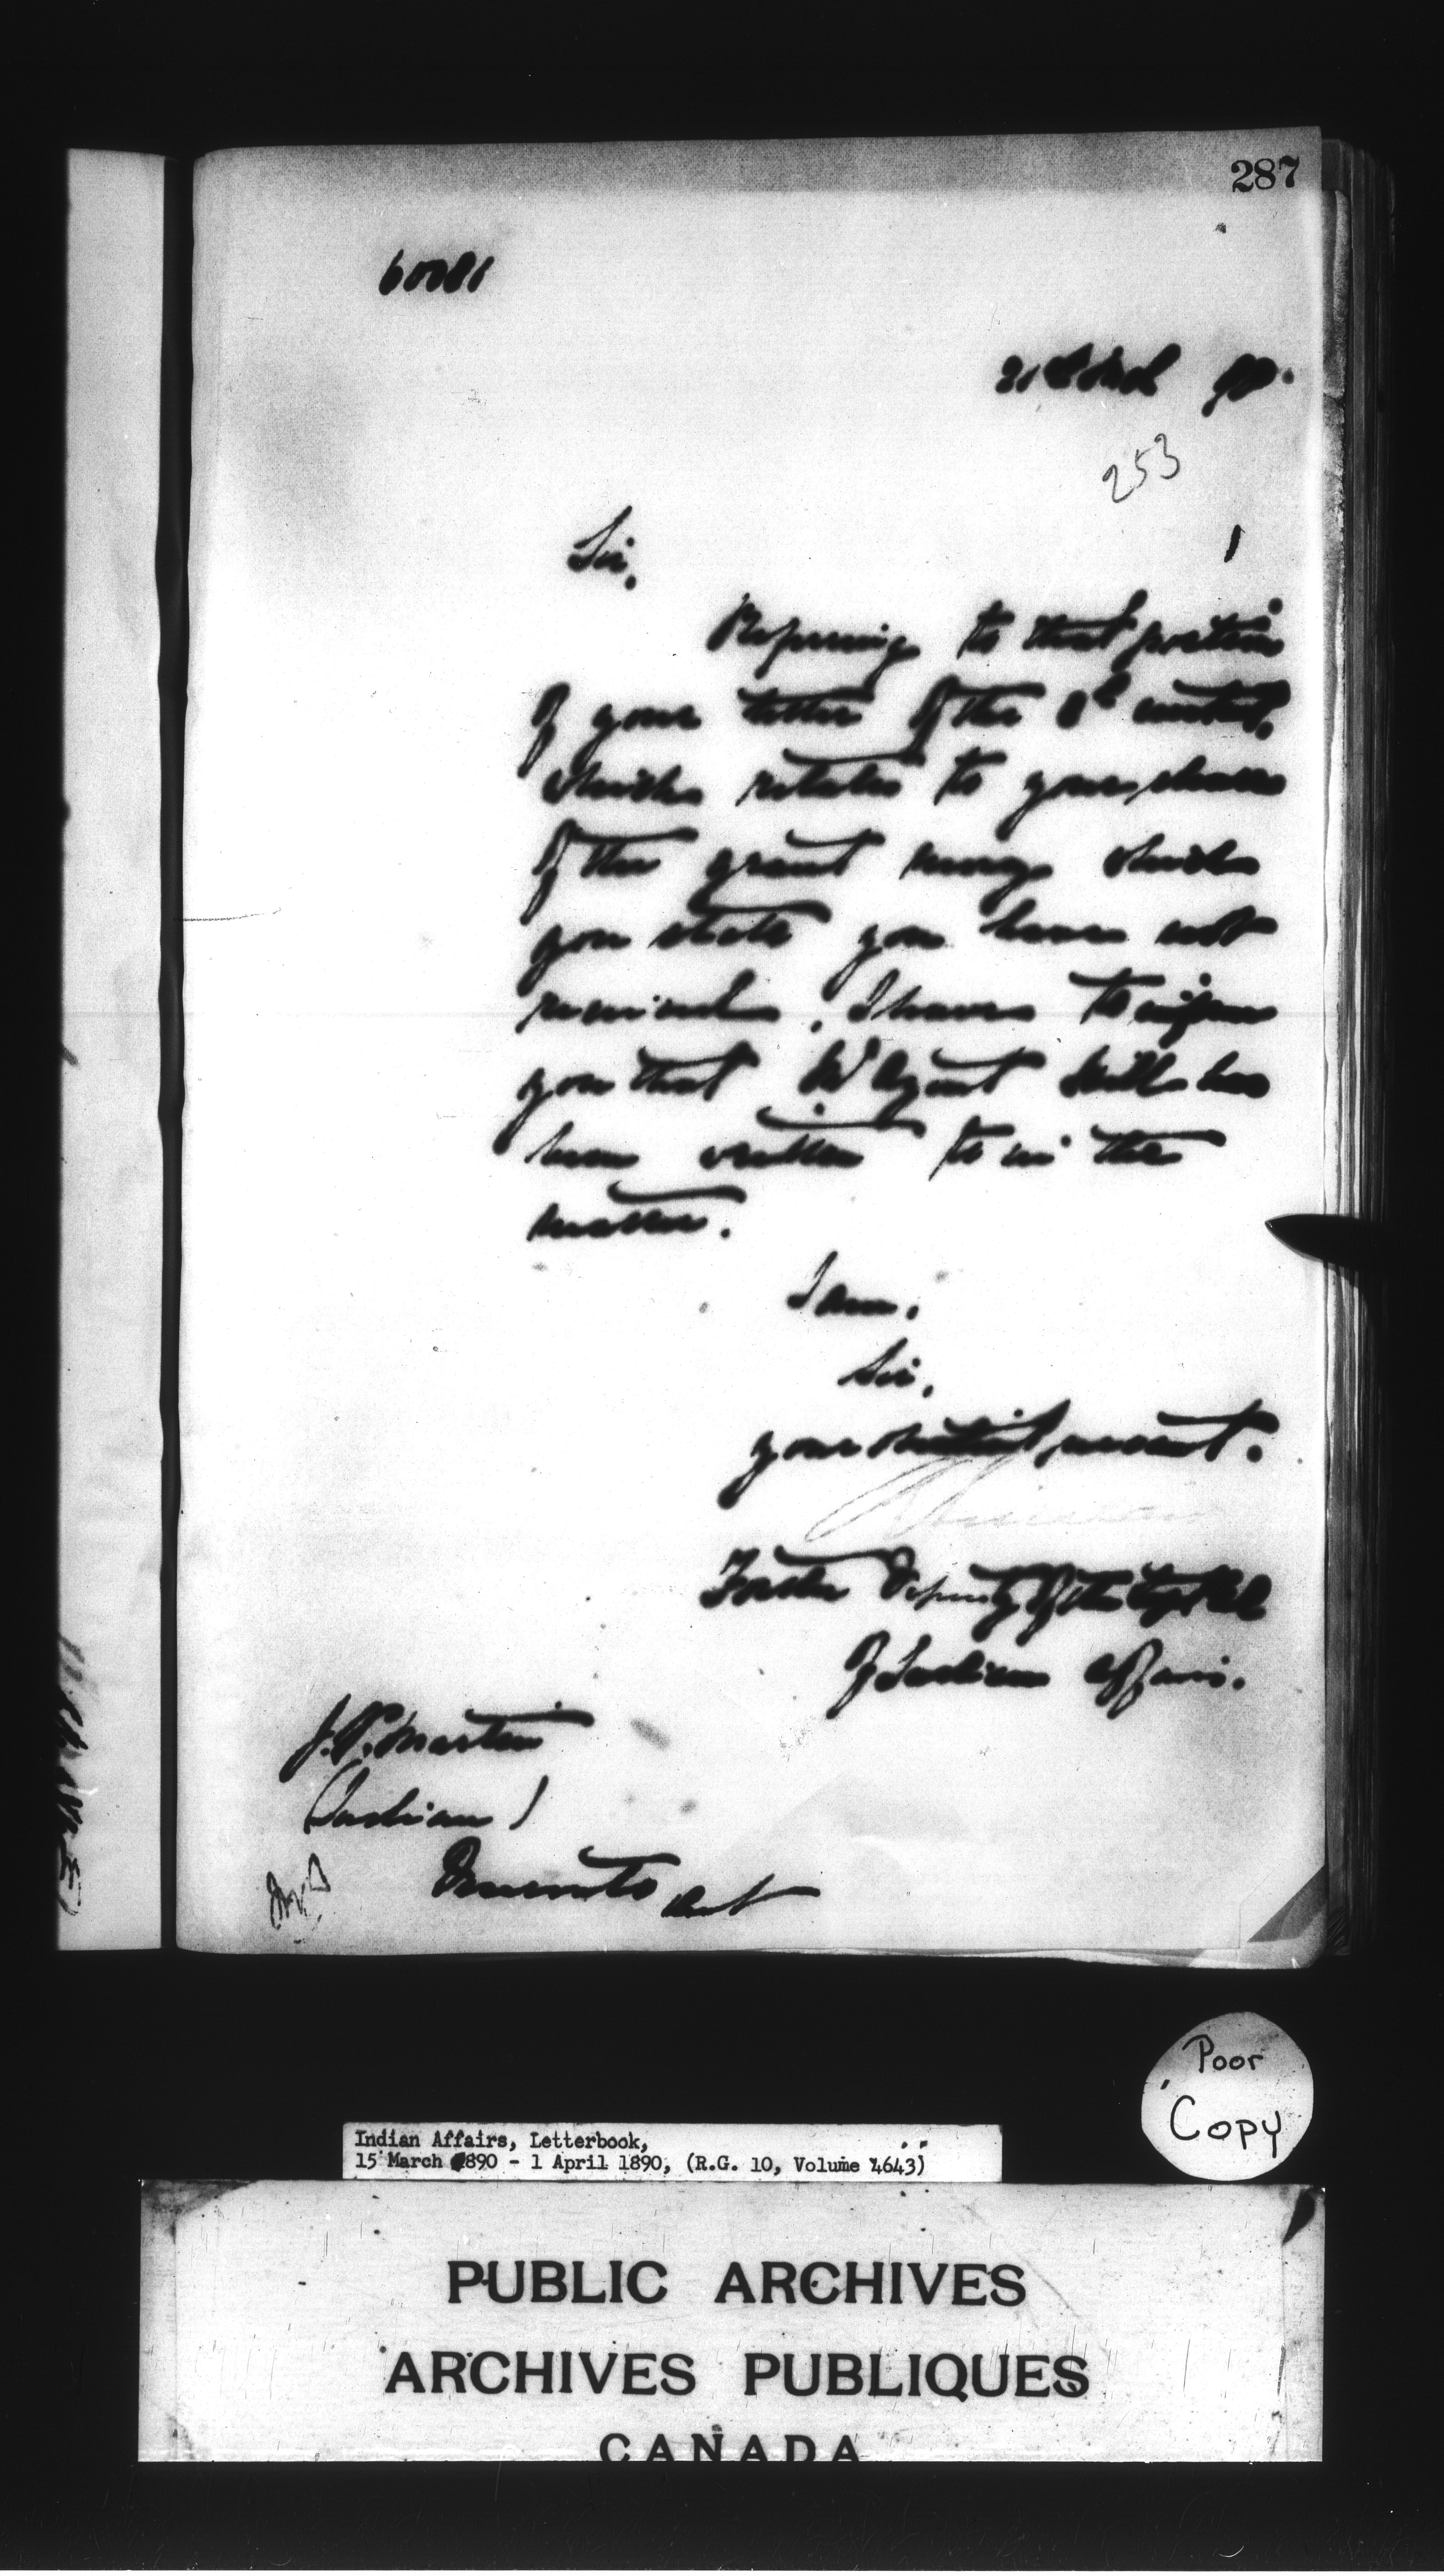 287
21st March 90.
253
Sir,
Referring to that portion
of your letter of the 8th instant,
which relates to your share
of the grant money which
you state you have not
received, I have to inform
you that Agent Hill has
been written to in the
matter.
I am,
Sir,
your obedient servant.
For the Deputy of the Supt Genl
of Indian Affairs.
J.P. Martin
(Indian)
Toronto Ont
Poor
Copy
Indian Affairs, Letterbook,
15 March 1890 - 1 April 1890, (R.G. 10, Volume 4643)
PUBLIC ARCHIVES
ARCHIVES PUBLIQUES
CANADA